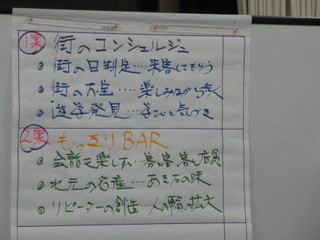 1案 街のコンシェルジュ
街の日制定…来客してもらう
街のお宝…楽しみながら歩く
遊学発見…学びと気づき
2案 もっきりBAR
会話を楽しむ…客、客、客と店員
地元の名産…あきたの味
リピーターの創造…人の輪の拡大